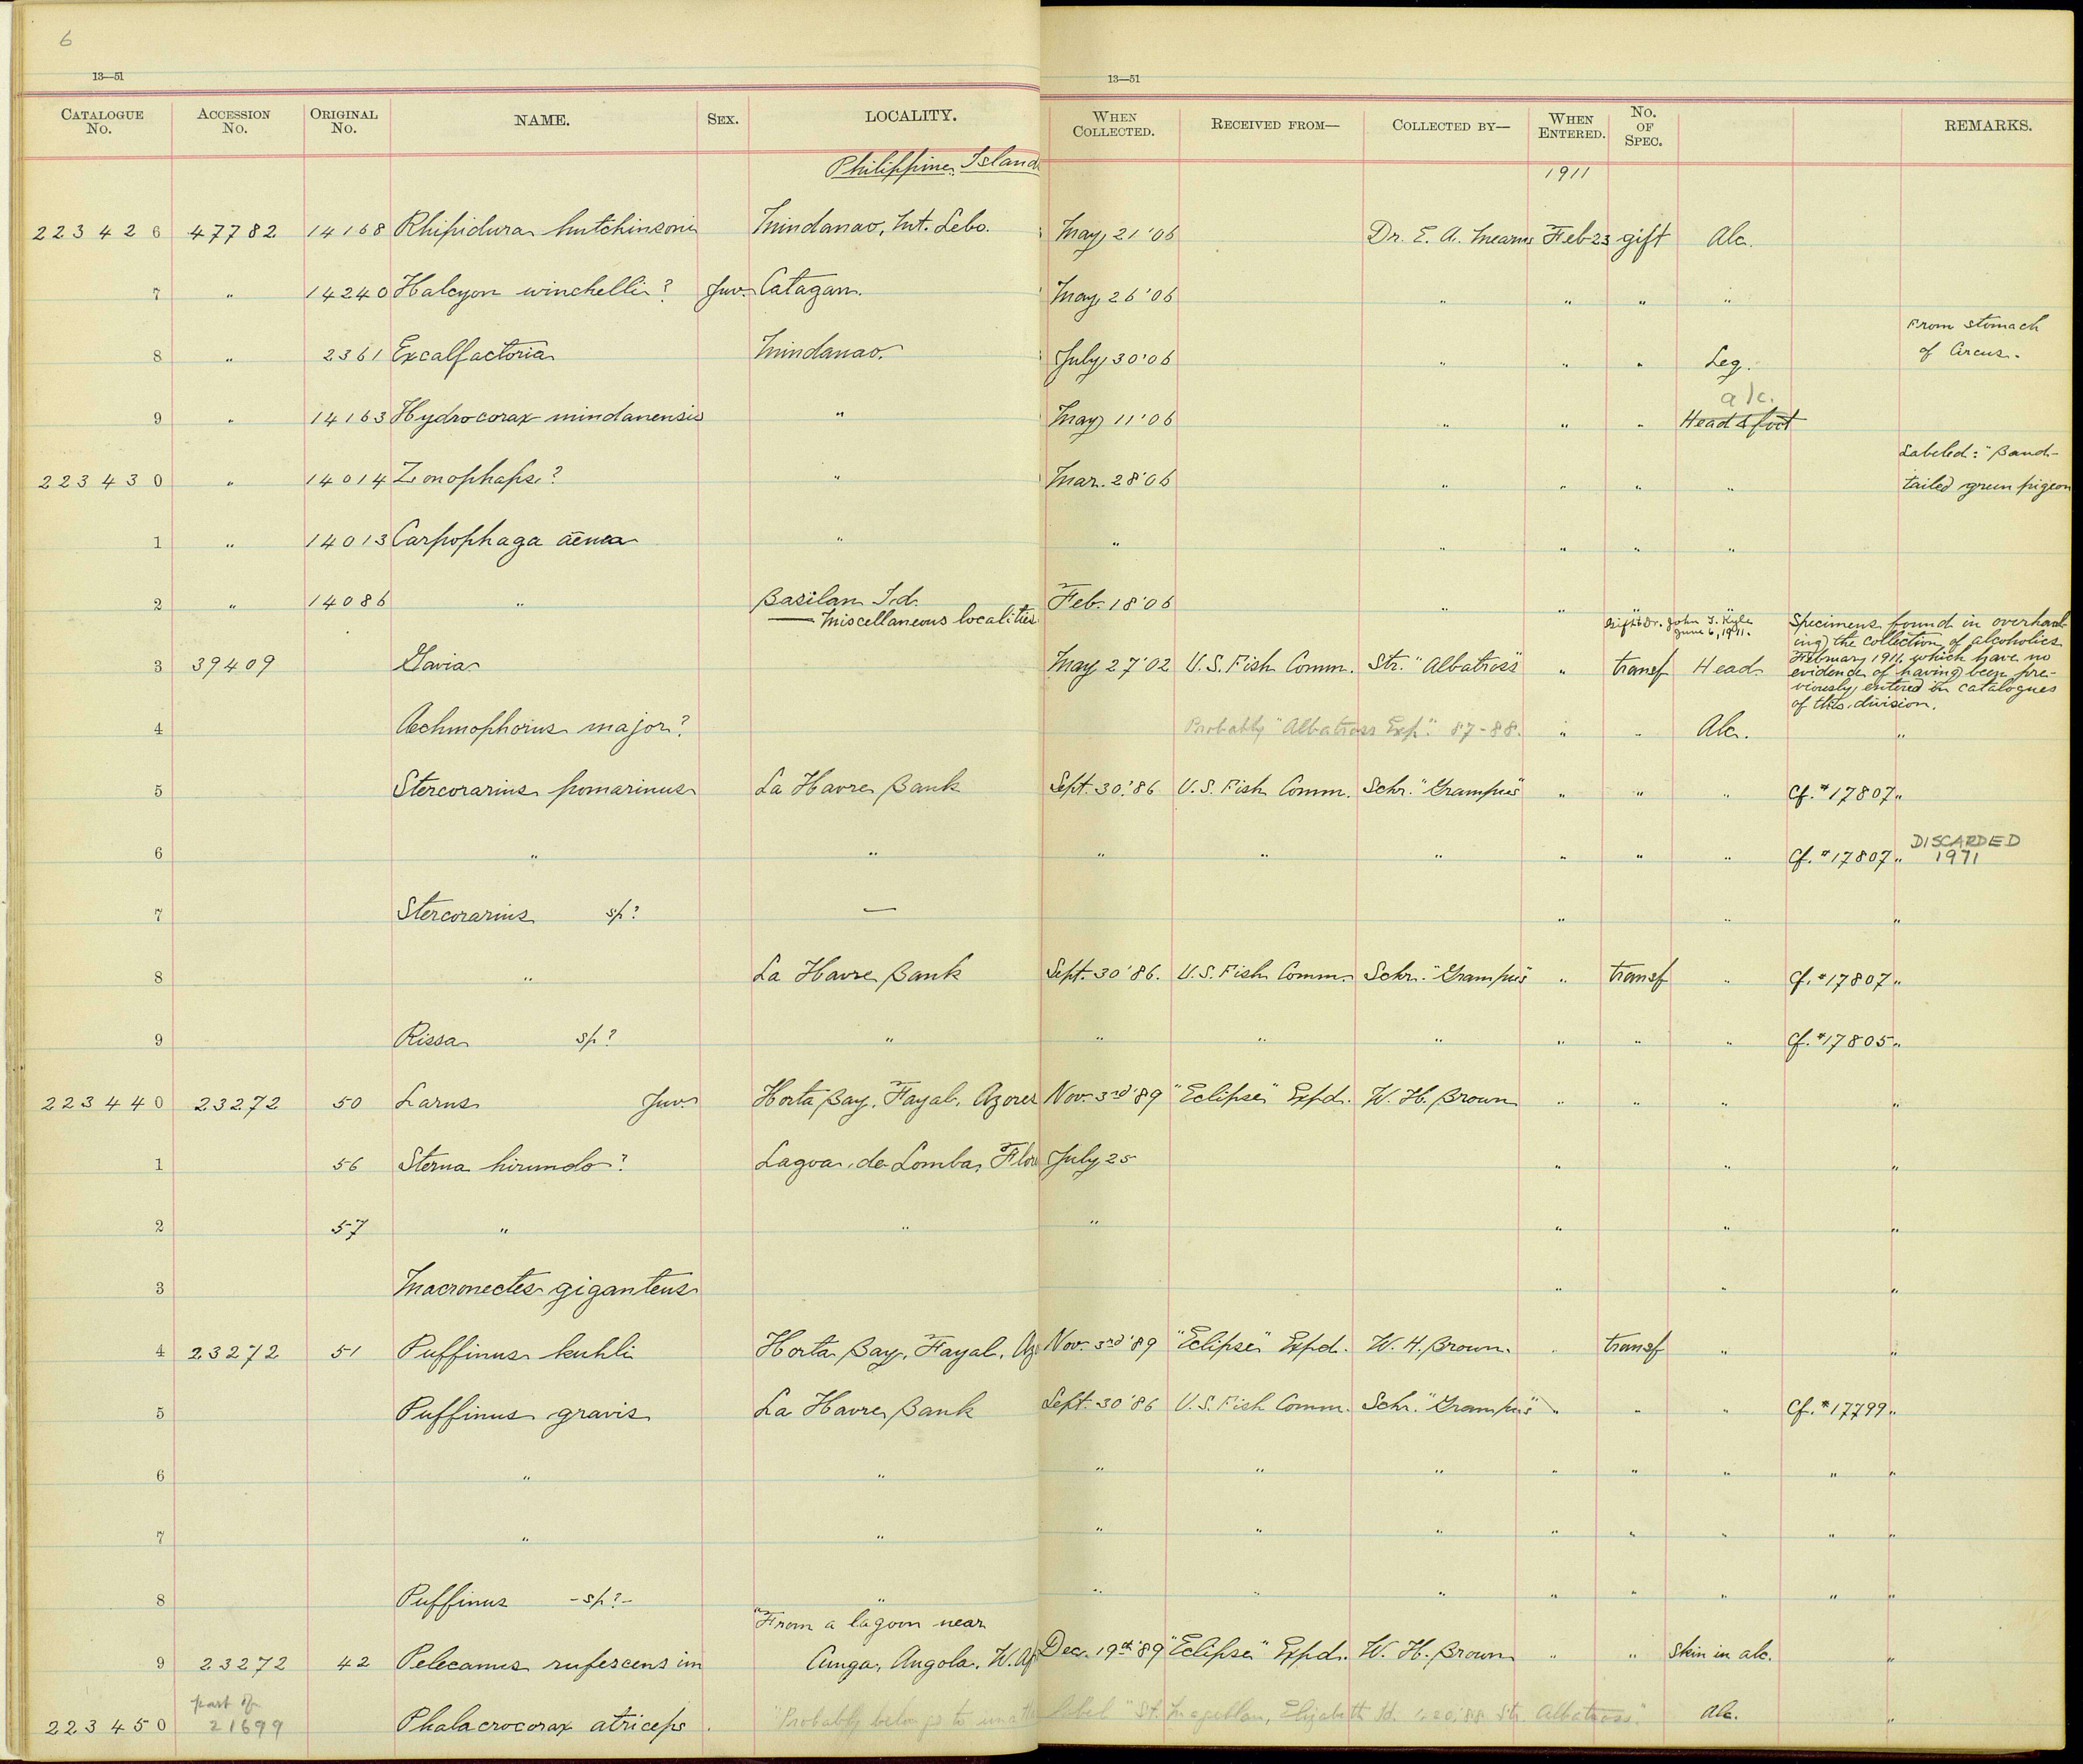 6
13—51
13—51
CATALOGUE No. ACCESSION No. ORIGINAL No. NAME. SEX. LOCALITY. WHEN COLLECTED. RECEIVED FROM— COLLECTED BY— WHEN ENTERED. No. OF SPEC. REMARKS.
Philippine Island 1911
223426 47782 14168 Rhipidura hutchinsoni Mindanao, Mt. Lebo. May 21 '06 Dr. E. A. Mearns Feb 23 gift Alc.
7 " 14240 Halcyon winchelli? Juv. Catagan. May 26 '06 " " " "
From stomach
8 " 2361 Excalfactoria Mindanao. July 30 '06 " " " Leg. of Circus.
alc.
9 " 14163 Hydrocorax mindanensis " May 11 '06 " " " Head & foot
Labeled: "Band-
223430 " 14014 Zonophaps? " Mar. 28 '06 " " " " tailed green pigeon
1 " 14013 Carpophaga aenea " " " " " "
2 " 14086 " Basilan Id. Feb. 18 '06 " "
Miscellaneous localities
Gift Dr. John J. Kyle
June 6, 1911.
Specimens found in overhaul-
ing the collection of alcoholics
February 1911, which have no
evidence of having been pre-
viously entered in catalogues
of this division.
3 39409 Gavia May 27 '02 U.S. Fish Comm. Str. "Albatross" " transf Head
4 Aechmophorus major? Probably "Albatross Exp." 87-88. " " Alc. "
5 Stercorarius pomarinus La Havre Bank Sept. 30. '86 U.S. Fish Comm. Schr. "Grampus" " " " Cf. #17807 "
6 " " " " " " " " Cf. #17807 " DISCARDED
1971
7 Stercorarius sp? — " " "
8 " La Havre Bank Sept. 30 '86. U.S. Fish Comm. Schr. "Grampus" " transf " Cf. #17807 "
9 Rissa sp? " " " " " " " Cf. #17805 "
223440 23272 50 Larus Juv. Horta Bay, Fayal, Azores Nov. 3rd '89 "Eclipse" Expd. W. H. Brown " " " "
1 56 Sterna hirundo? Lagoa de Lomba, Flor July 25 " " "
2 57 " " " " " "
3 Macronectes giganteus " " "
4 23272 51 Puffinus kuhli Horta Bay, Fayal, Az Nov. 3rd '89 "Eclipse" Expd. W. H. Brown. " transf " "
5 Puffinus gravis La Havre Bank Sept. 30 '86 U.S. Fish Comm. Schr. "Grampus" " " " Cf. #17799 "
6 " " " " " " " " " "
7 " " " " " " " " " "
8 Puffinus -sp?- " " " " " " " " "
"From a lagoon near
9 23272 42 Pelecanus rufescens im Cunga, Angola. W. Af Dec. 19th '89 "Eclipse" Expd. W. H. Brown " " Skin in alc. "
part of
223450 21699 Phalacrocorax atriceps. "Probably belongs to label "St. Magellan, Elizabeth Id. Str. Albatross." Alc. "